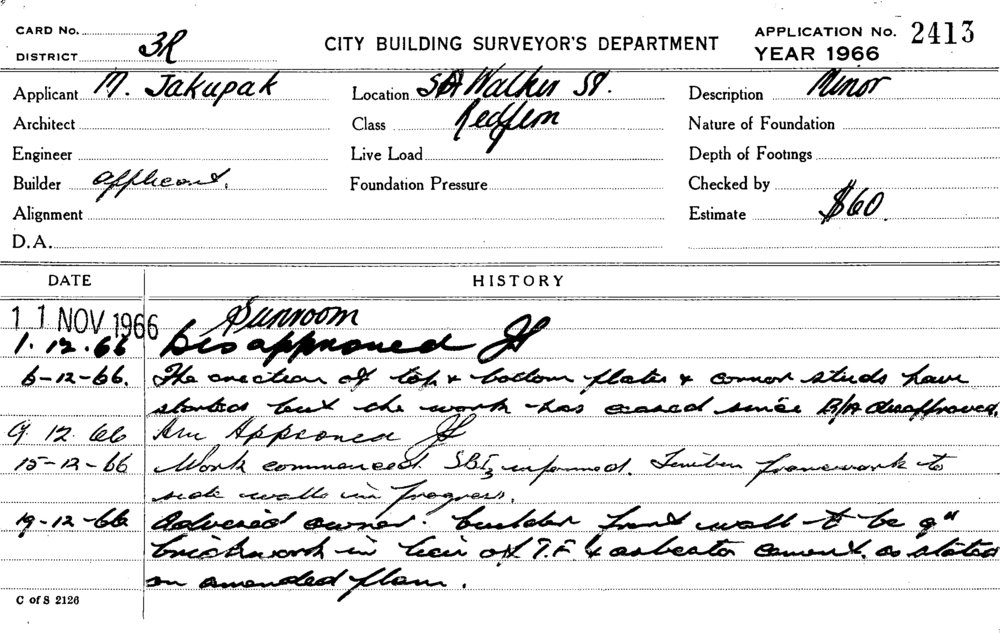 CARD No.
DISTRICT 3R
CITY BUILDING SURVEYOR'S DEPARTMENT
APPLICATION No. 2413
YEAR 1966
Applicant M. Jakupak
Location Walker St.
Description Minor
Architect
Class Redfern
Nature of Foundation
Engineer
Live Load
Depth of Footings
Builder Applicant.
Foundation Pressure
Checked by
Alignment
Estimate $60.
D.A.
DATE HISTORY
11 NOV 1966 Sunroom
1.12.66 Disapproved
6-12-66. The erection of top & bottom plates & corner studs have
started but the work has ceased since B/A disapproved.
9.12.66 Approved
15-12-66 Work commenced. informed. Timber framework to
side walls in progress.
19-12-66 Advised owner. builder front wall to be 9"
brickwork in lieu of T.F. & asbestos cement. as stated
on amended plan.
C of S 2126